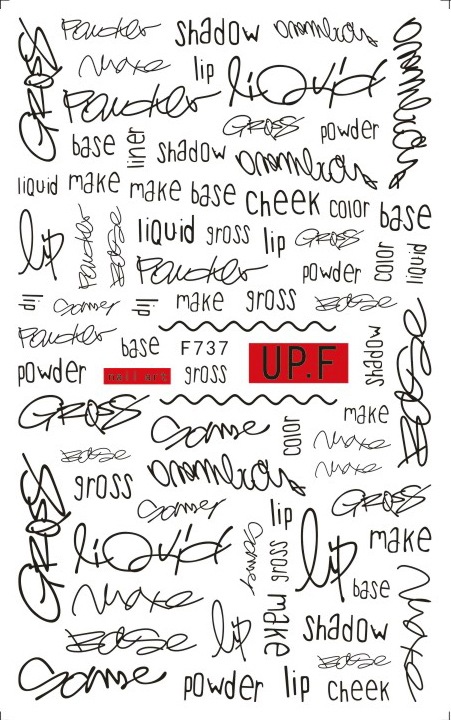 Powder shadow
GROSS Make lip liquid
Powder GROSS powder
base liner shadow
liquid make make base cheek color base
lip Powder Base liquid gross lip GROSS
Powder powder color liquid
lip lip make gross Base
Powder base F737 UP.F shadow Base
powder nail art gross
GROSS make
color Make
Base Make
gross GROSS
GROSS lip make
liquid gross lip base
Make make Make
Base lip shadow
Base
powder lip cheek